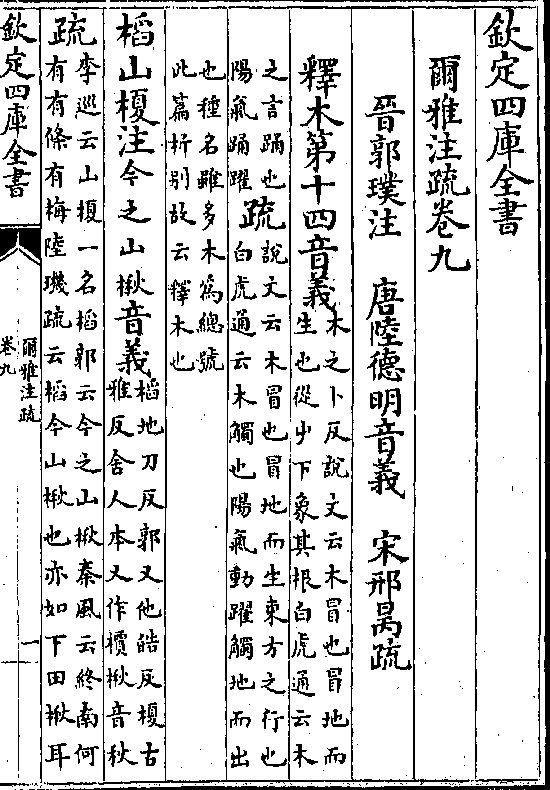 欽定四庫全書
爾雅注疏卷九
晉郭璞注 唐陸德明音義 宋邢昺疏
釋木第十四音義木之卜反說文云木冒也冒地而
生也從屮下象其根白虎通云木
之言踊也
陽氣踊躍疏說文云木冒也冒地而生東方之行也
白虎通云木觸也陽氣動躍觸地而出
也種名雖多木為總號
此篇析別故云釋木也
槄山榎注今之山楸音義槄地刀反郭又他皓反榎古
雅反舍人本又作檟楸音秋
疏李巡云山榎一名槄郭云今之山楸秦風云終南何
有有條有梅陸璣疏云槄今山楸也亦如下田楸耳
欽定四庫全書
爾雅注疏
卷九
一